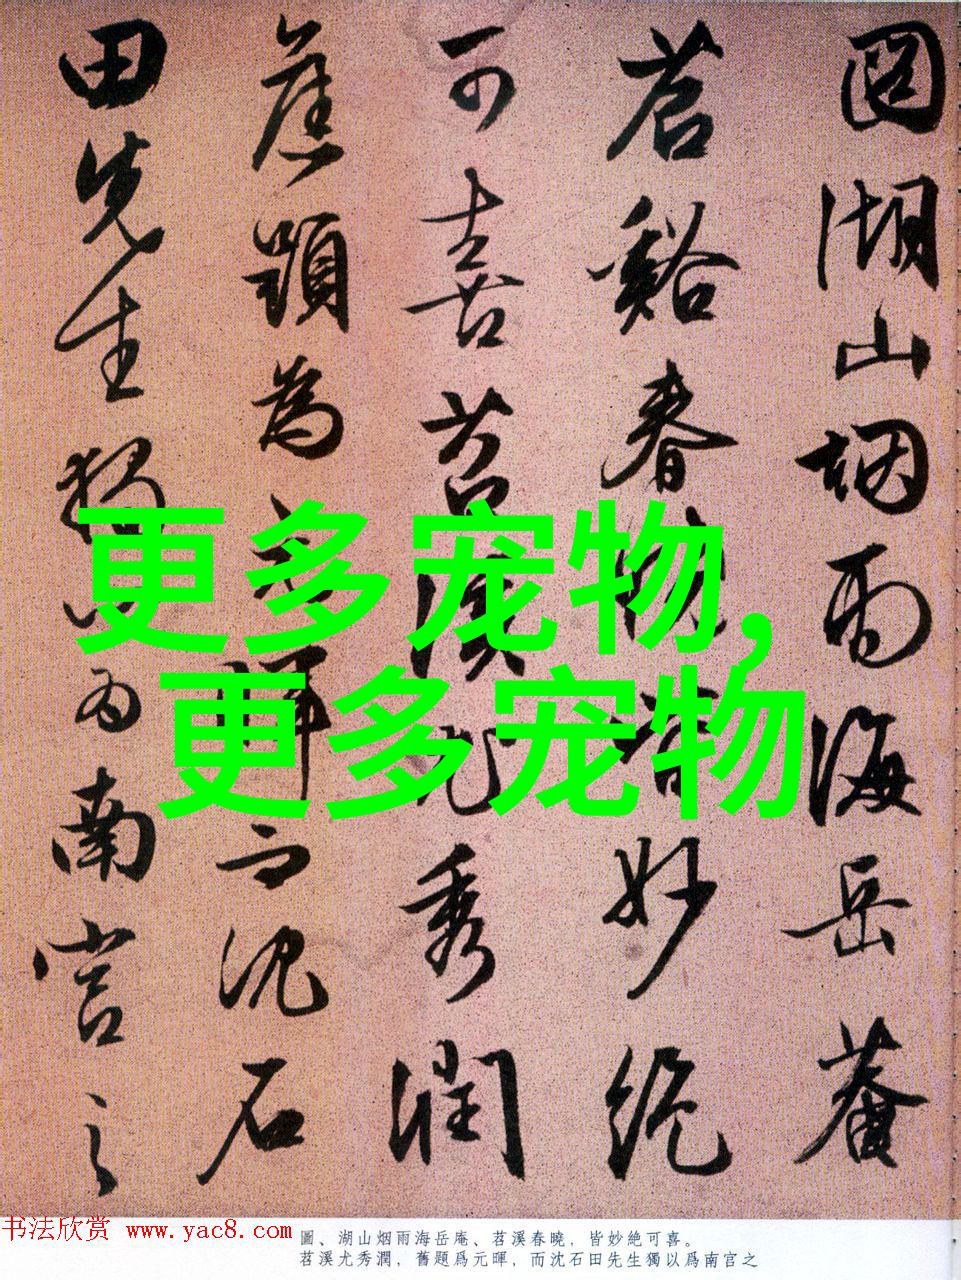 圖湖山烟雨海岳菴
苕谿春曉皆妙絕
可喜苕溪尤秀潤
舊題為元暉而沈石
田先生獨以為南宫之
更多宠物,
更多宠物
书法欣赏 www.yac8.com
圖、湖山烟雨海岳庵、苕溪春曉,皆妙絶可喜。
苕溪尤秀潤,舊題爲元暉,而沈石田先生獨以爲南宫之